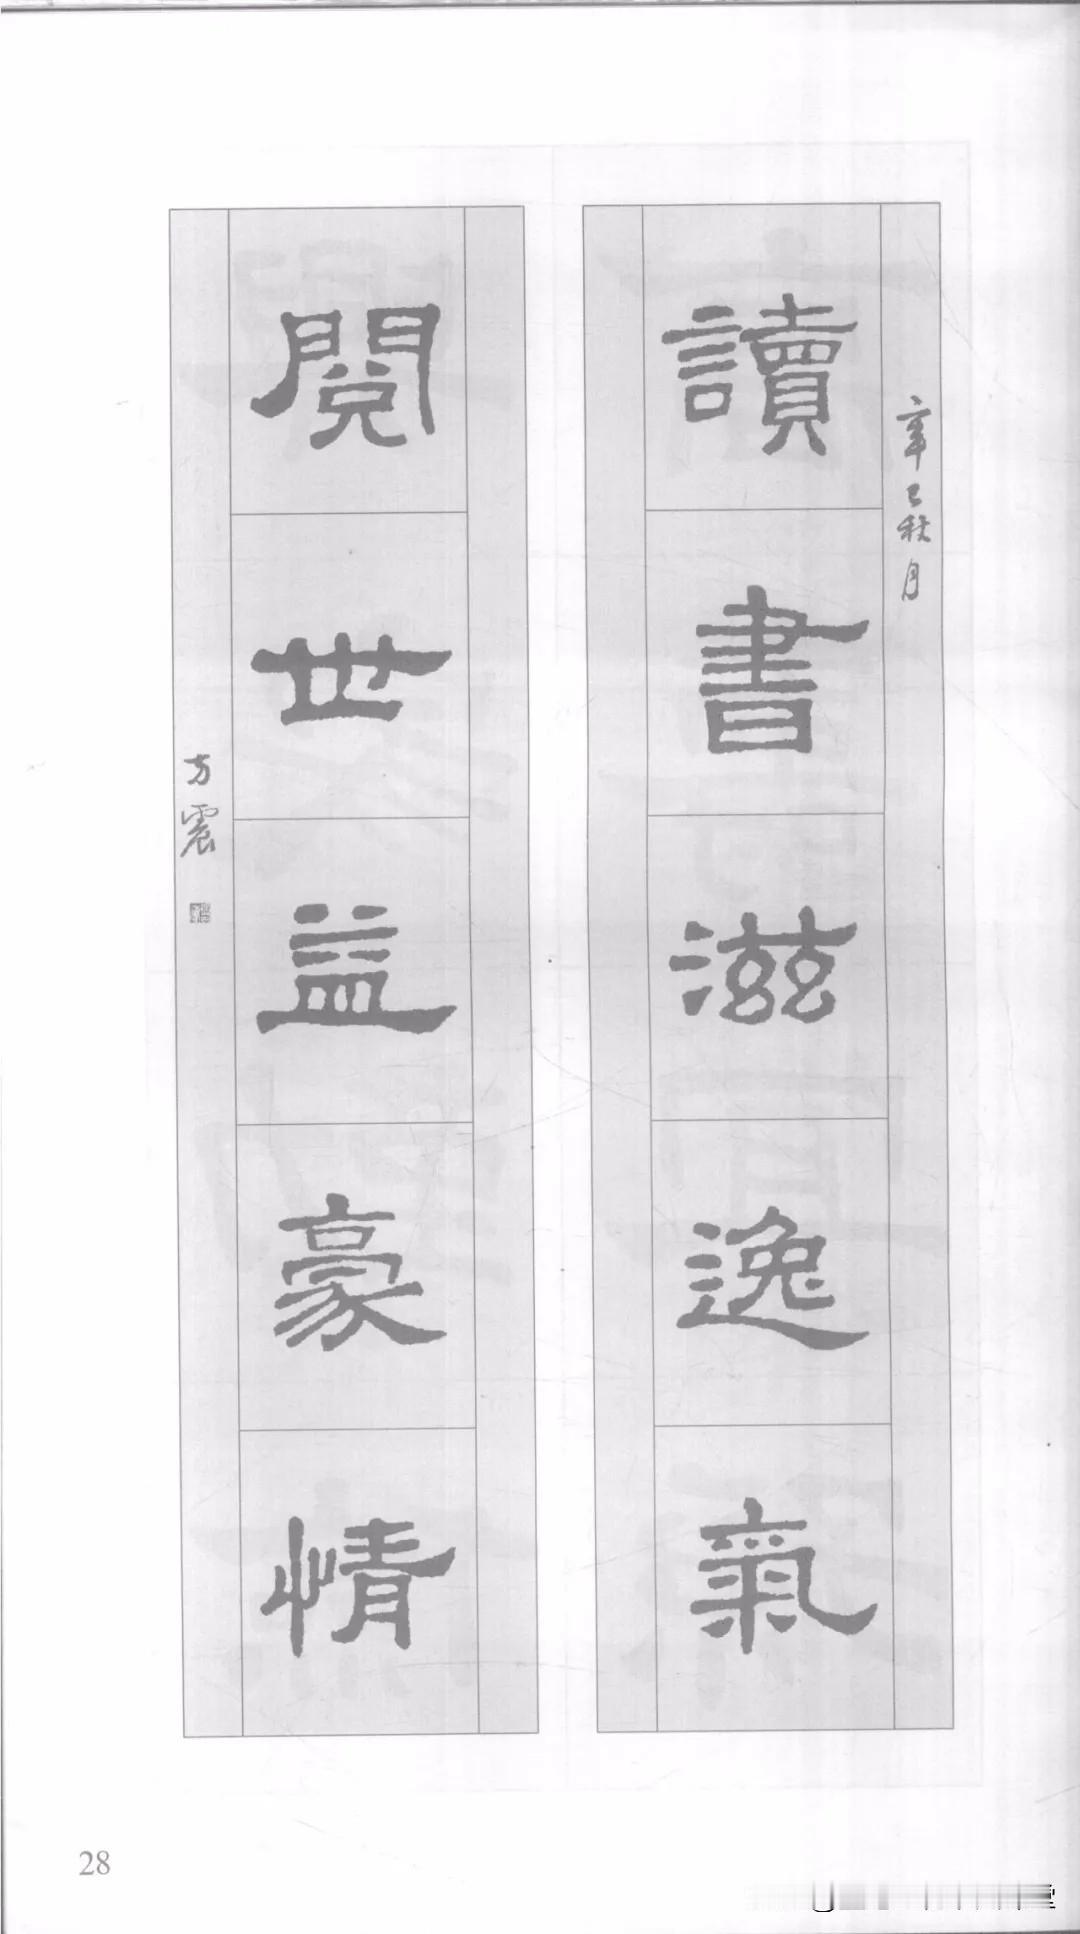 辛巳秋月
讀書滋逸氣
閱世益豪情
方震
28